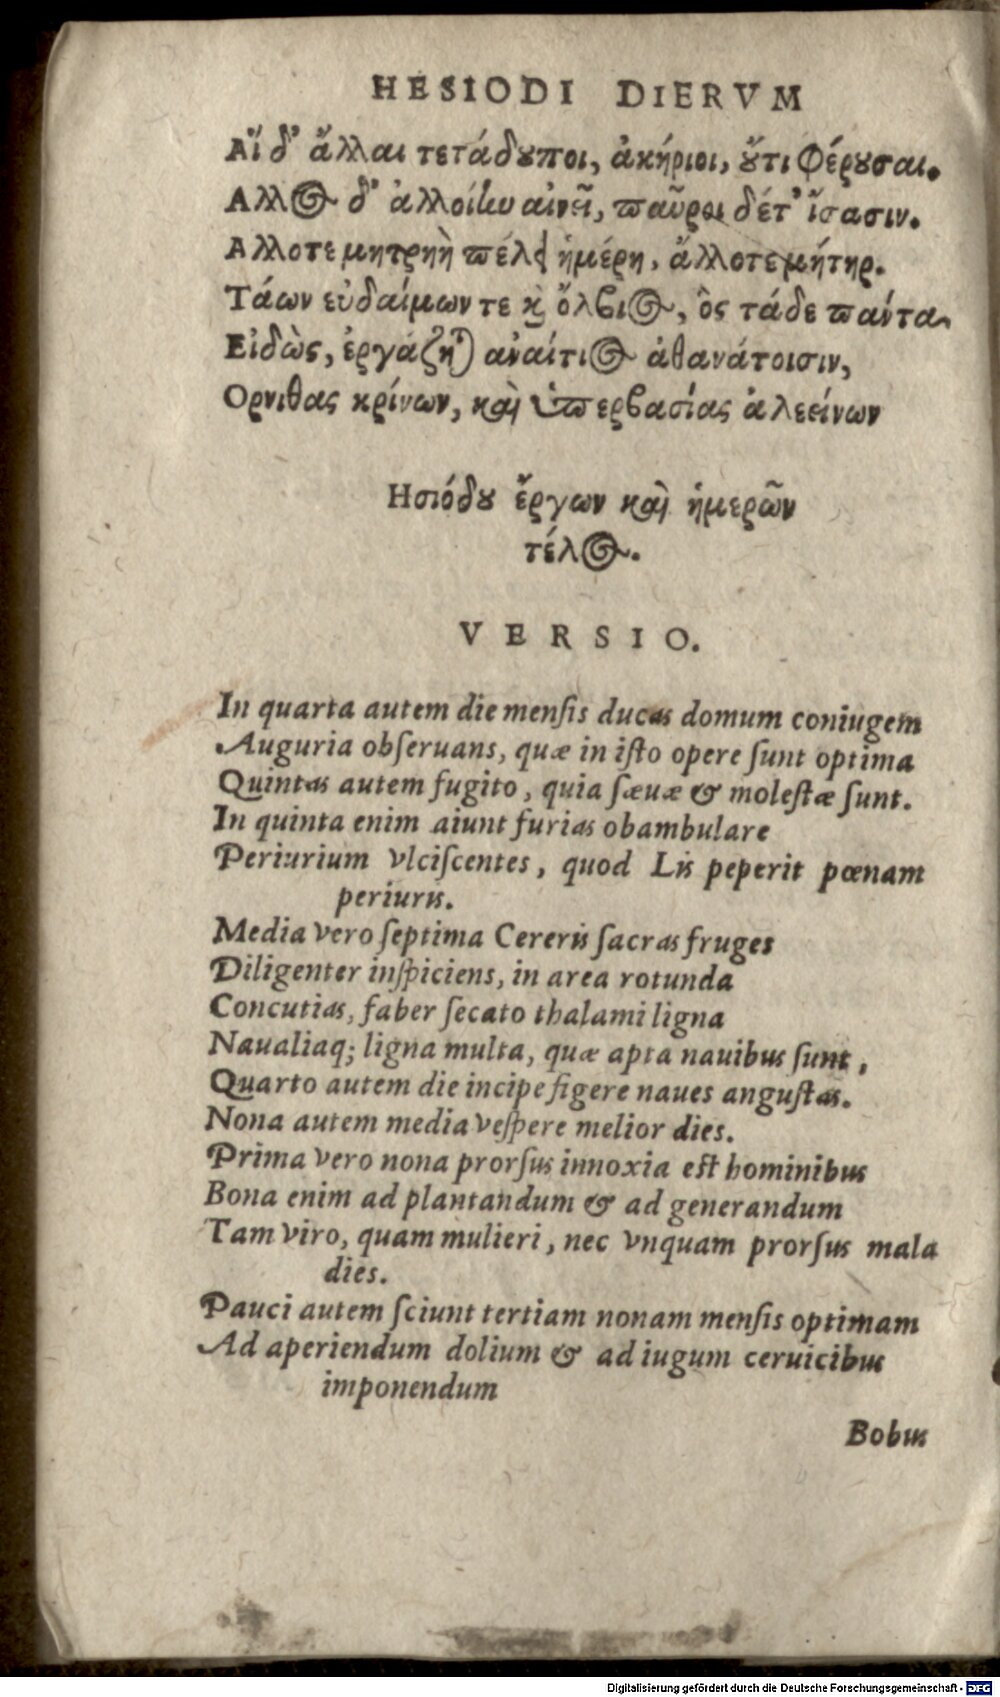 HESIODI DIERVM
Αἵ δ' ἄλλαι τετάδουποι, ἀκήριοι, οὔτι φέρουσαι.
Αλλος δ' ἀλλοίην αἰνεῖ, παῦροι δέτ' ἴσασιν.
Αλλοτε μητρηὴ πέλει ἡμέρη, ἄλλοτε μήτηρ.
Τάων εὐδαίμων τε καὶ ὄλβιος, ὃς τάδε πάντα
Εἰδὼς, ἐργάζηται ἀναίτιος ἀθανάτοισιν,
Ορνιθας κρίνων, καὶ ὑπερβασίας ἀλεείνων
Ησιόδου ἔργων καὶ ἡμερῶν
τέλος.
VERSIO.
In quarta autem die menſis ducas domum coniugem
Auguria obſeruans, quæ in iſto opere ſunt optima
Quintas autem fugito, quia ſæuæ & moleſtæ ſunt.
In quinta enim aiunt furias obambulare
Periurium vlciſcentes, quod Lis peperit pœnam
periuris.
Media vero ſeptima Cereris ſacras fruges
Diligenter inſpiciens, in area rotunda
Concutias, faber ſecato thalami ligna
Naualiaq; ligna multa, quæ apta nauibus ſunt,
Quarto autem die incipe figere naues anguſtas.
Nona autem media veſpere melior dies.
Prima vero nona prorſus innoxia eſt hominibus
Bona enim ad plantandum & ad generandum
Tam viro, quam mulieri, nec vnquam prorſus mala
dies.
Pauci autem ſciunt tertiam nonam menſis optimam
Ad aperiendum dolium & ad iugum ceruicibus
imponendum
Bobus
Digitalisierung gefördert durch die Deutsche Forschungsgemeinschaft - DFG